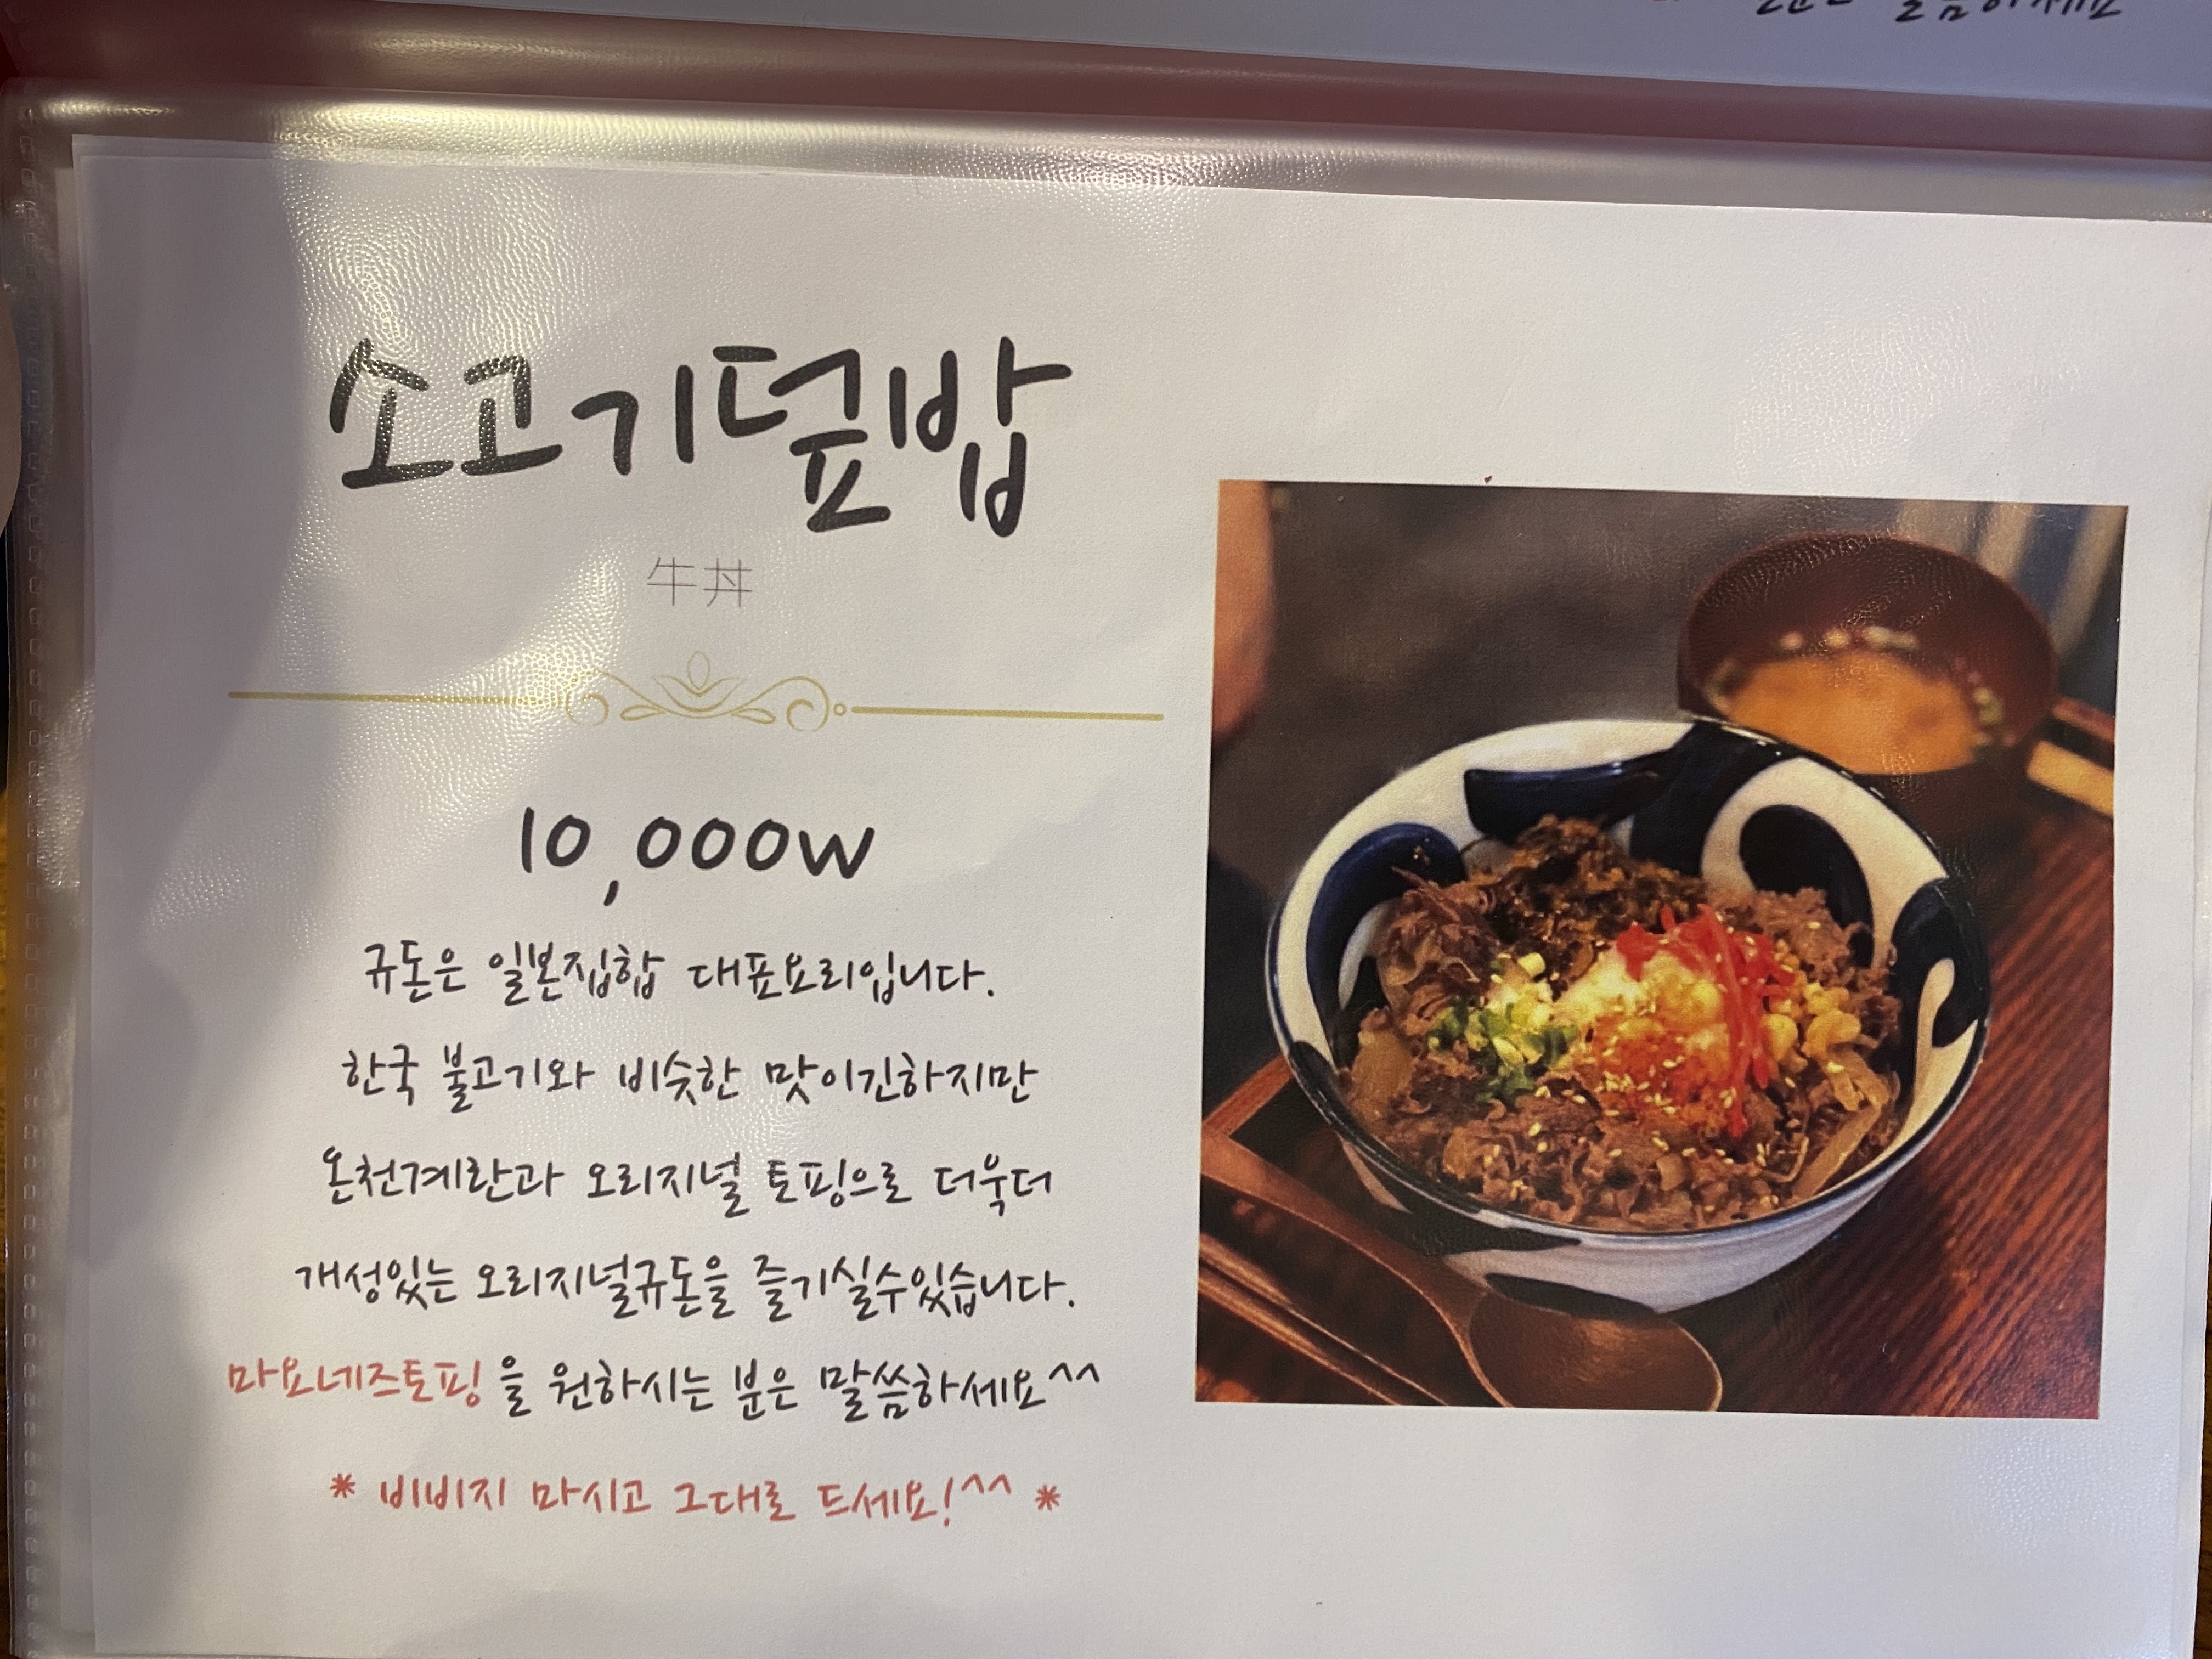 소고기덮밥
牛丼
10,000w
규돈은 일본집합 대표요리입니다.
한국 불고기와 비슷한 맛이긴하지만
온천계란과 오리지널 토핑으로 더욱더
개성있는 오리지널규돈을 즐기실수있습니다.
마요네즈토핑 을 원하시는 분은 말씀하세요^^
* 비비지 마시고 그대로 드세요!^^ *